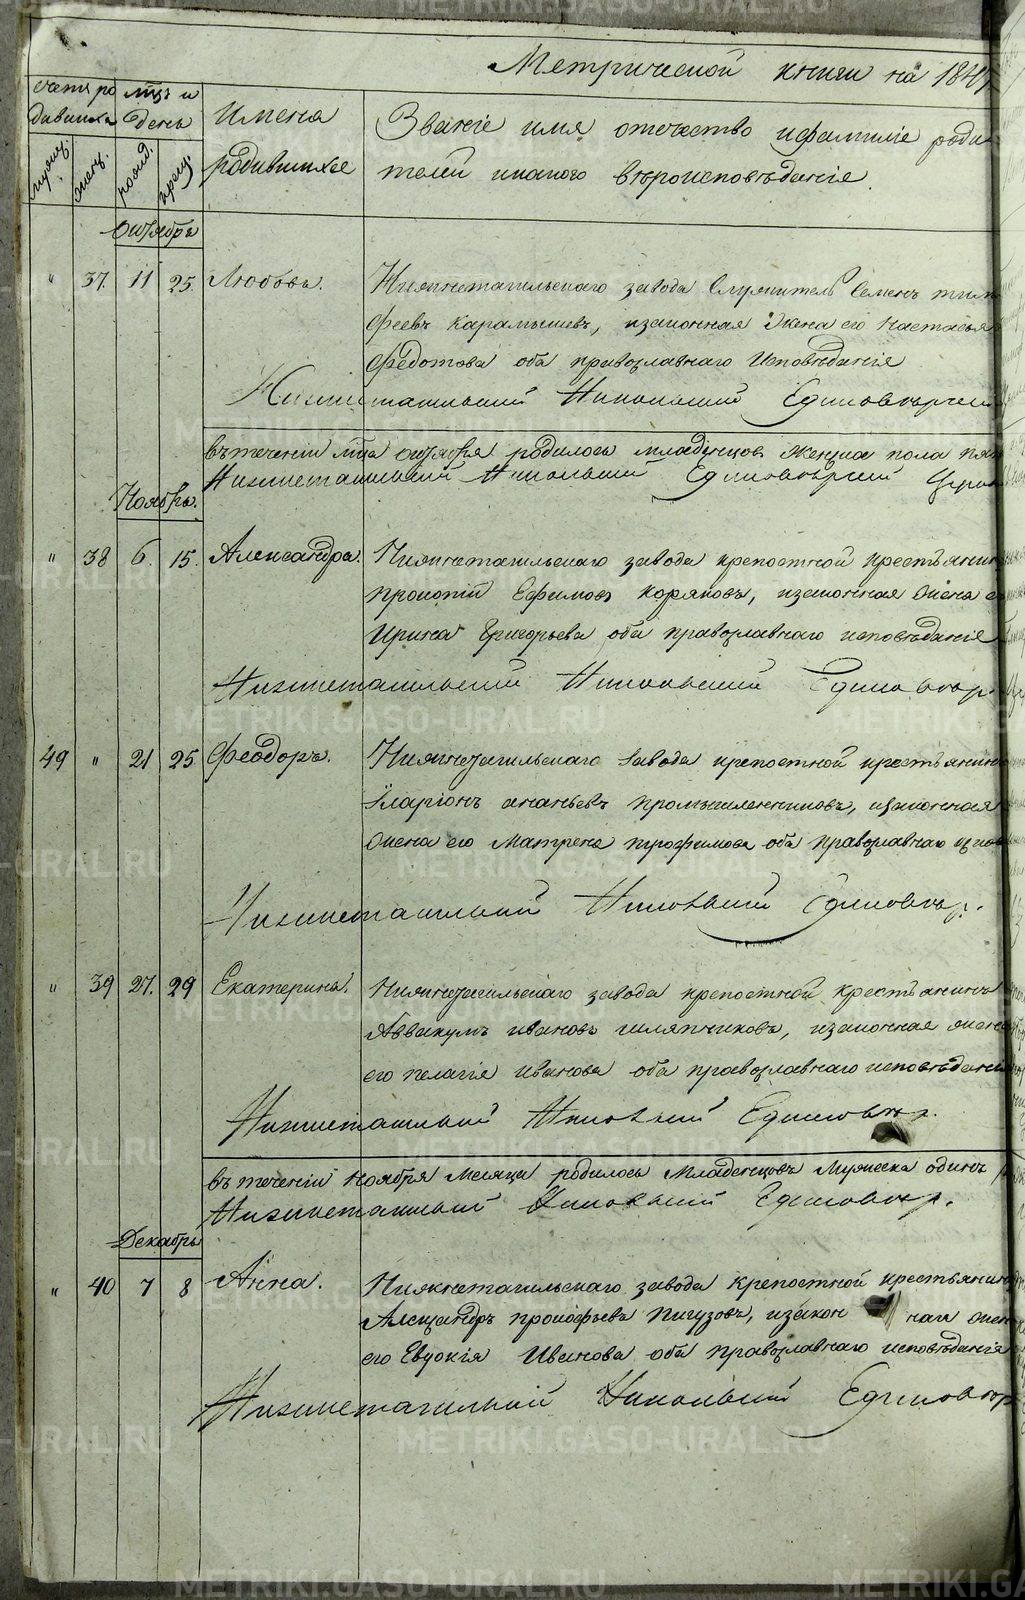 Метрической книги на 184
счетъ ро
дившихся
мц̃ъ и
день
Имена
родившихся
Званіе имя отечество ифамиліе роди
телей икакого вѣроисповѣданія.
мужеск.
женск.
рожд.
крещ.
Октября
" 37. 11 25. Любовь.
Нижнетагильскаго завода служитель Семенъ тимо
феевъ Карамышевъ, изаконная Жена его Настасья
федотова оба православнаго Исповѣданія
Нижнетагильской Никольской Единовѣрческ
въ теченіи мц̃а октября родилось младенцовъ Женска пола пять
Нижнетагильской Никольской Единовѣрческой Церкви
Ноябрь.
" 38 6. 15. Александра.
Нижнетагильскаго завода крепостной крестьянинъ
прокопій Ефимовъ коряковъ, изаконная Жена е
Ирина Григорьева оба православнаго исповѣданія
Нижнетагильской Никольской Единовѣр.
49 " 21 25 Феодоръ.
Нижнетагильскаго завода крепостной крестьянинъ
Іларіонъ ананьевъ промышленниковъ, изаконная
Жена его Матрена трофимова оба православнаго испов
Нижнетагильской Никольской Единовѣр.
" 39 27. 29 Екатерина.
Нижнетагильскаго завода крепостной крестьянинъ
Аввакумъ ивановъ шляпниковъ, изаконная жена
его пелагія иванова оба православнаго исповѣданія
Нижнетагильской Никольской Единовѣр.
въ теченіи ноября месяца родилось младенцовъ Мужеска одинъ
Нижнетагильской Никольской Единовѣр.
Декабрь
" 40 7 8 Анна.
Нижнетагильскаго завода крепостной крестьянинъ
Александръ прокофьевъ Пигузовъ, изакон ная жена
его Евдокія Иванова оба православнаго исповѣданія
Нижнетагильской Никольской Единовѣр
METRIKI.GASO-URAL.RU